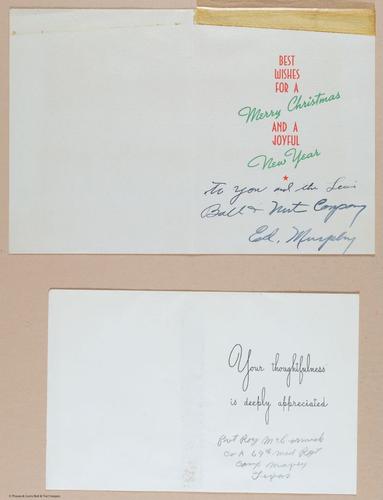 BEST
WISHES
FOR A
Merry Christmas
AND A
JOYFUL
New Year
to you and the Lewis
Bolt & Nut Company
Ed. Murphy
Your thoughtfulness
is deeply appreciated
Pvt Roy McCormick
Co A 69th Med Rgt
Camp Maxey
Texas